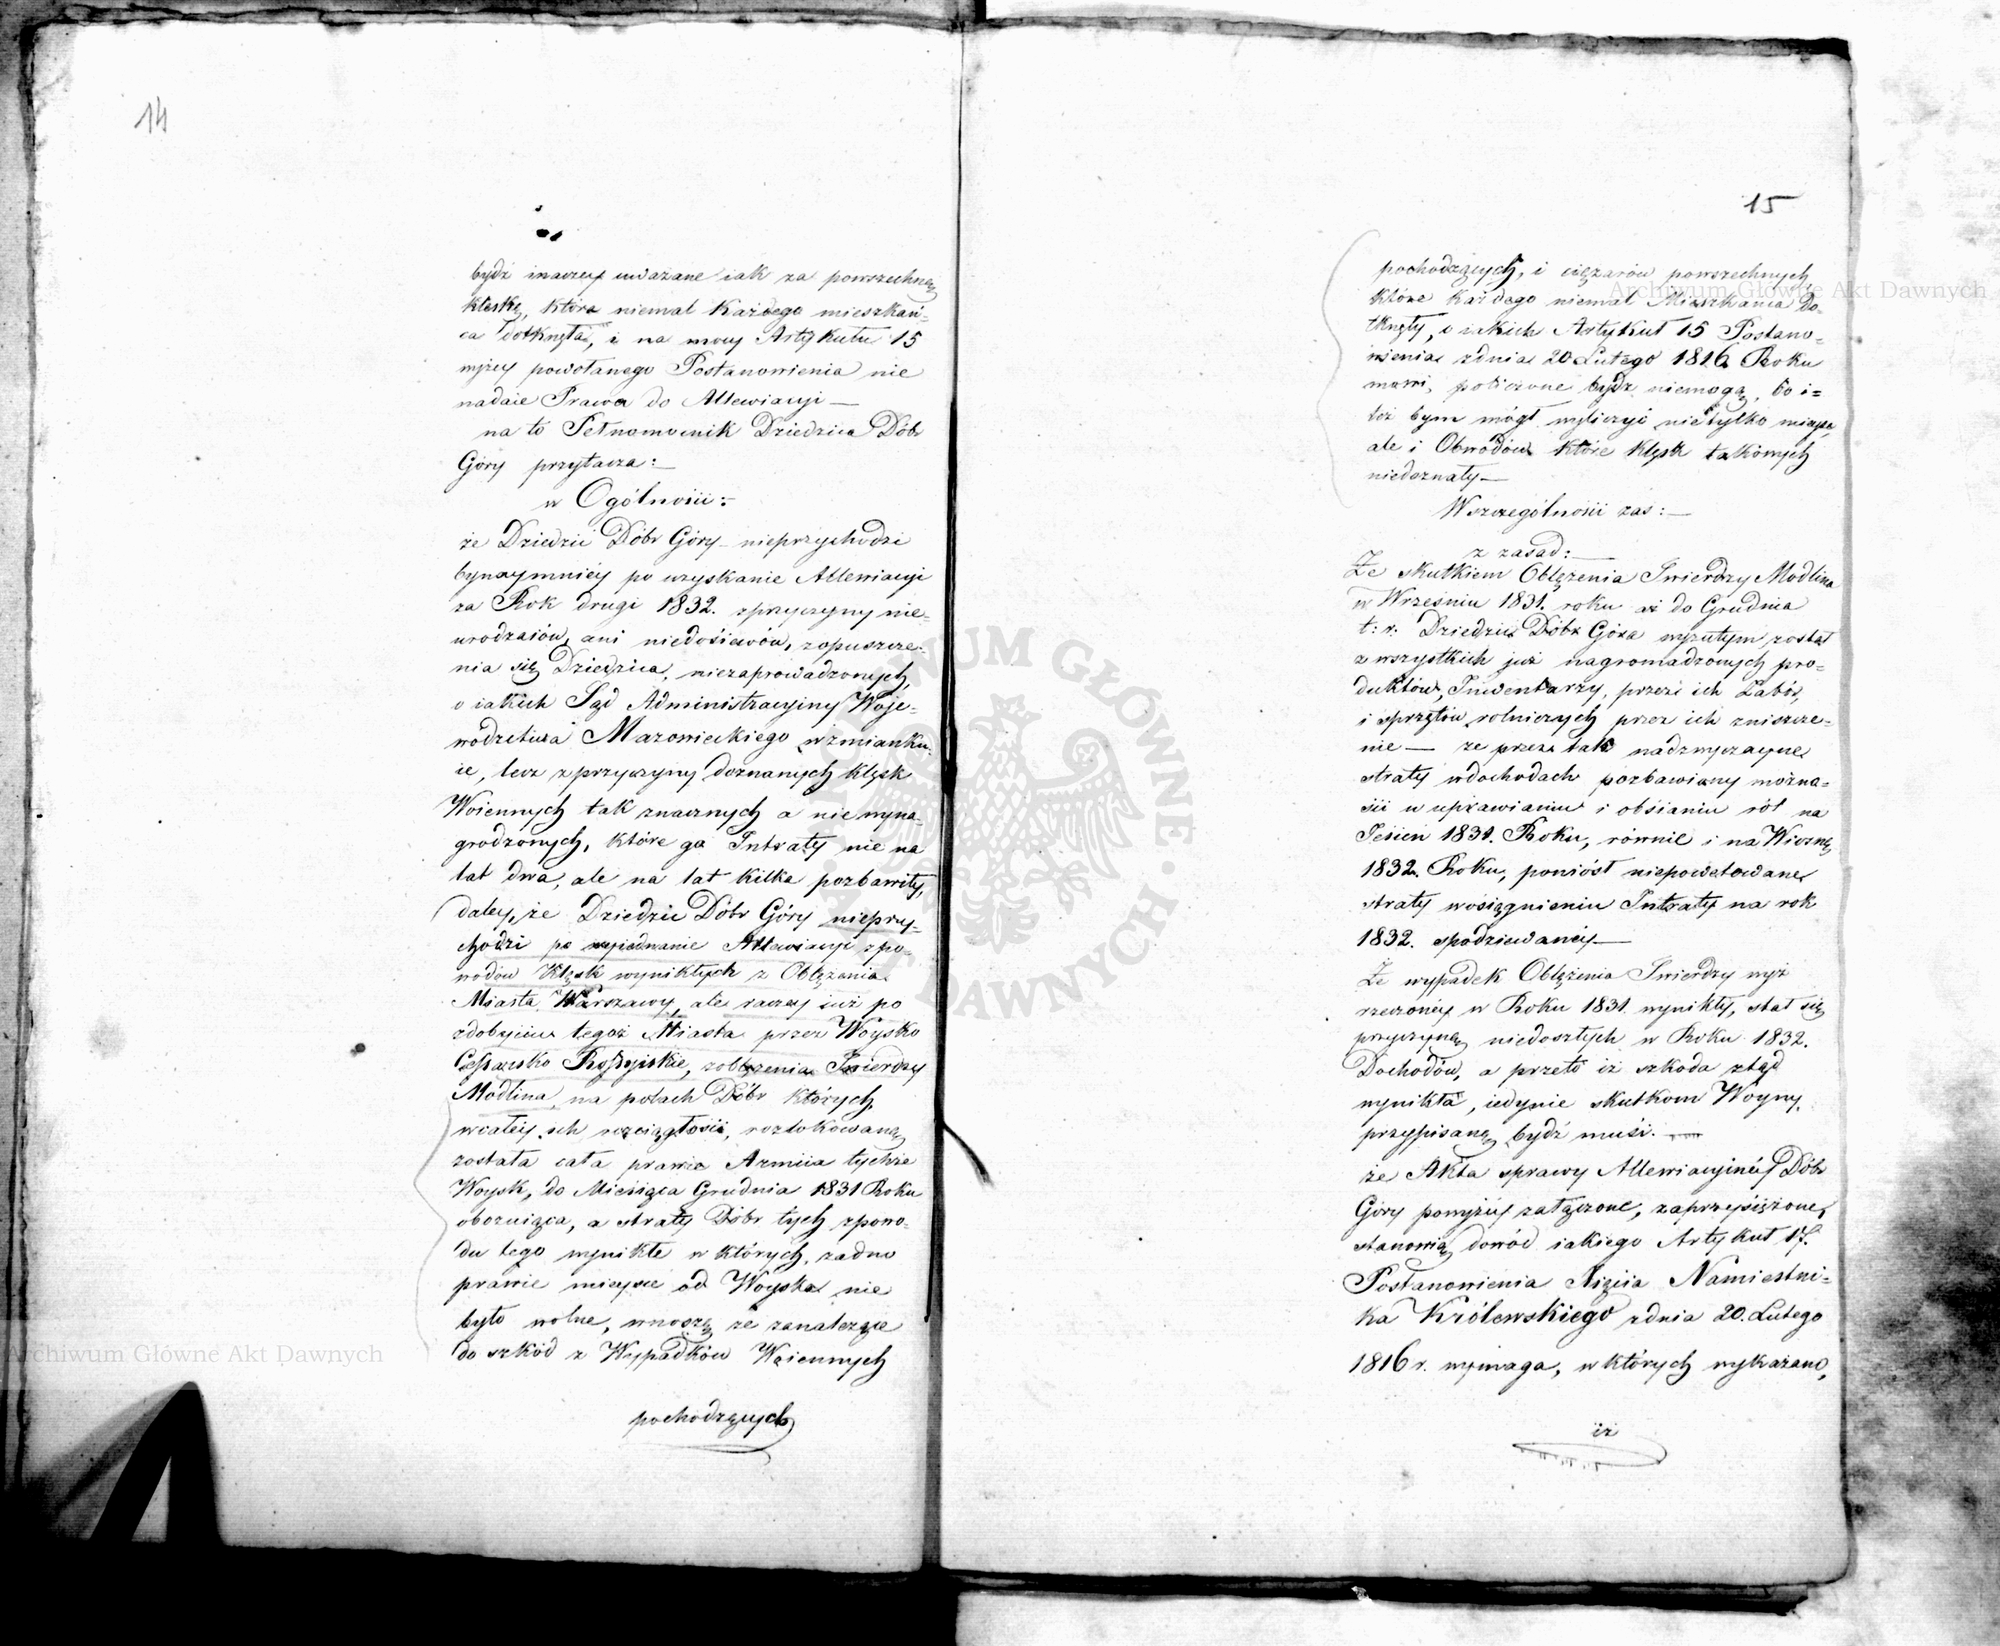 14
bydź inaczey uważane iak za powszechną
klęskę, która niemal każdego mieszkań-
ca dotknęła, i na mocy Artykułu 15
wyżey powołanego Postanowienia nie
nadaie Prawa do Allewiacyi —
na to Pełnomocnik Dziedzica Dóbr
Góry przytacza: —
w Ogólności: -
że Dziedzic Dóbr Góry nieprzychodzi
bynaymniéy po uzyskanie Allewiacyi
za Rok drugi 1832. zprzyczyny nie-
urodzaiów, ani niedosiewów, zopuszcze-
nia się Dziedzica, niezaprowadzonych,
o iakich Sąd Administracyiny Woje-
wodztwa Mazowieckiego wzmianku-
ie, lecz zprzyczyny doznanych klęsk
Woiennych tak znacznych a nie wyna-
grodzonych, które go Intraty nie na
lat dwa, ale na lat kilka pozbawiły,
daley, że Dziedzic Dóbr Góry nieprzy-
chodzi po wyjednanie Allewiacyi zpo-
wodów klęsk wynikłych z Oblężenia
Miasta Warszawy, ale raczey już po
zdobyciu tegoż Miasta przez Woysko
Cesarsko Rossyiskie, zoblężenia Twierdzy
Modlina, na polach Dóbr których
wcałéy ich rozciągłości, rozlokowaną
została cała prawie Armiia tychże
Woysk, do Miesiąca Grudnia 1831 Roku
obozuiąca, a straty Dóbr tych zpowo-
du tego wynikłe w których, żadne
prawie mieysce od Woyska nie
było wolne, wnoszą że zanależące
do szkód z Wypadków Woiennych
pochodzących
15
pochodzących, i ciężarów powszechnych
które każdego niemal Mieszkańca do-
tknęły, o iakich Artykuł 15 Postano-
wienia zdnia 20 Lutego 1816 Roku
mówi, policzone bydź niemogą, bo i-
leż bym mógł wyliczyć nietylko mieysc,
ale i Obwodów które klęsk takowych
niedoznały —
Wszczególności zaś: —
z zasad: —
Że skutkiem Oblężenia Twierdzy Modlina
w Wrześniu 1831. roku aż do Grudnia
t: r: Dziedzic Dóbr Góra wyzutym został
z wszystkich już nagromadzonych pro-
duktów, Inwentarzy, przez ich Zabór,
i sprzętów rolniczych przez ich zniszcze-
nie — że przez tak nadzwyczayne
straty wdochodach pozbawiony możno-
ści w uprawianiu i obsianiu ról na
Jesień 1831. Roku, równie i na Wiosnę
1832. Roku, poniósł niepowetowane
straty wosiągnieniu Intraty na rok
1832. spodziewanéy —
Że wypadek Oblężenia Twierdzy wyż
rzeczonéy w Roku 1831 wynikły, stał się
przyczyną niedoszłych w Roku 1832.
Dochodów, a przeto iż szkoda ztąd
wynikła, iedynie skutkom Woyny,
przypisaną bydź musi. —
że Akta sprawy Allewiacyinéy Dóbr
Góry powyżéy załączone, zaprzysiężone,
stanowią dowód iakiego Artykuł 17.
Postanowienia Xięcia Namiestni-
ka Królewskiego zdnia 20. Lutego
1816 r. wymaga, w których wykazano,
iż